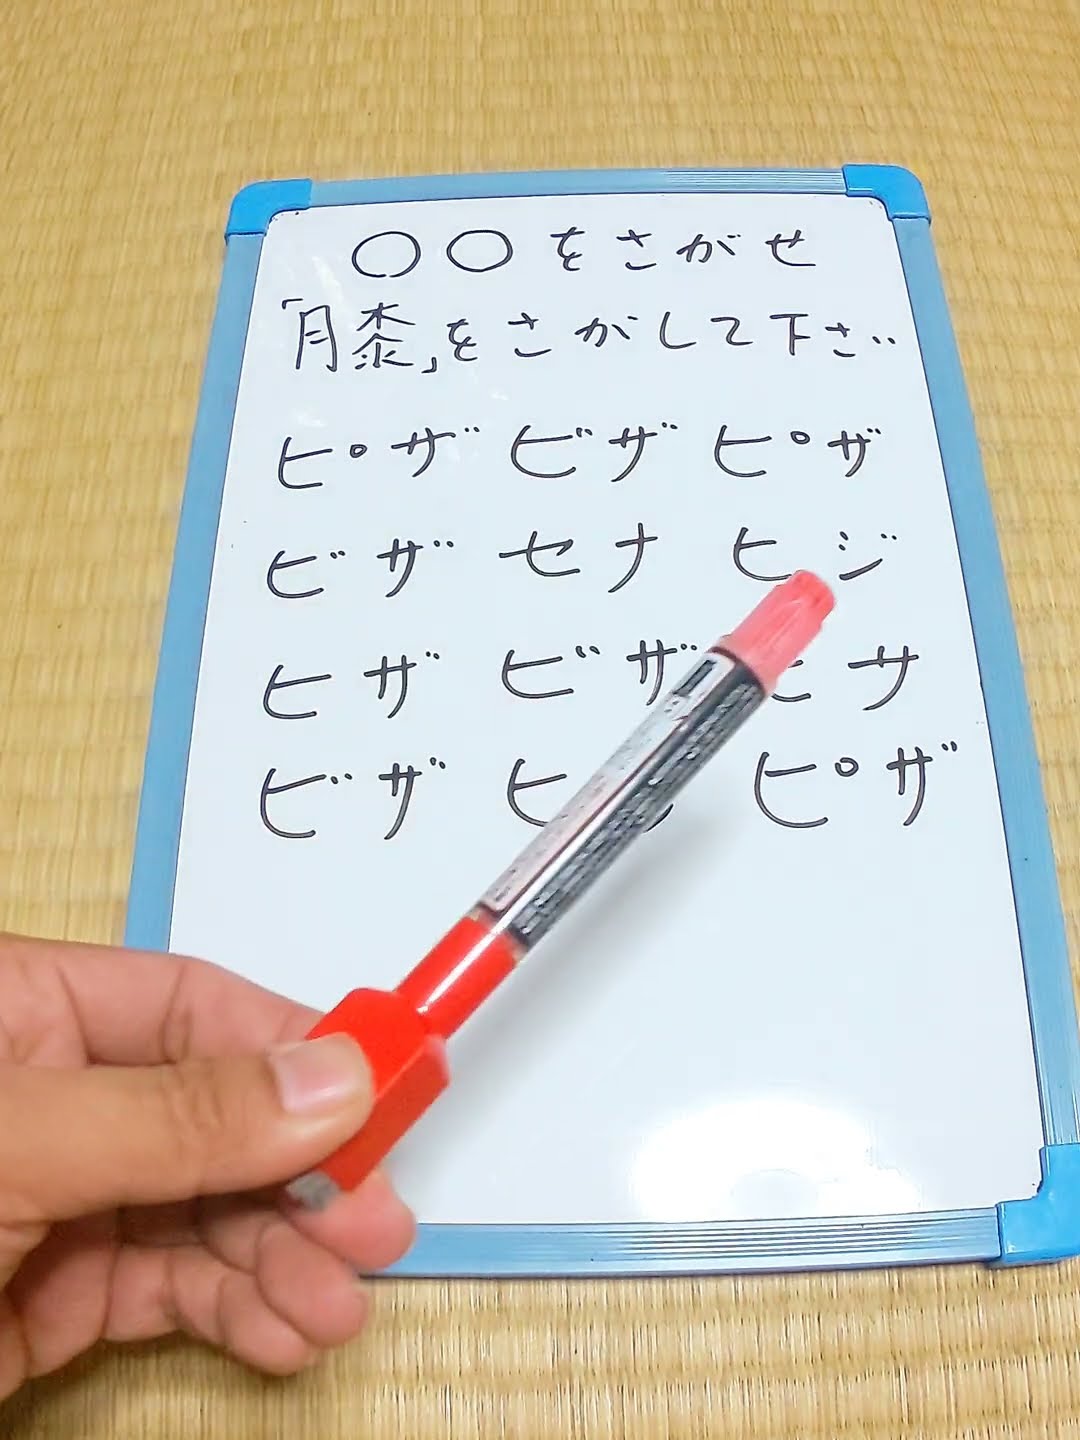 〇〇をさがせ
「膝」をさがして下さい
ピザ ビザ ピザ
ビザ セナ ヒジ
ヒザ ビザ
ビザ ピザ